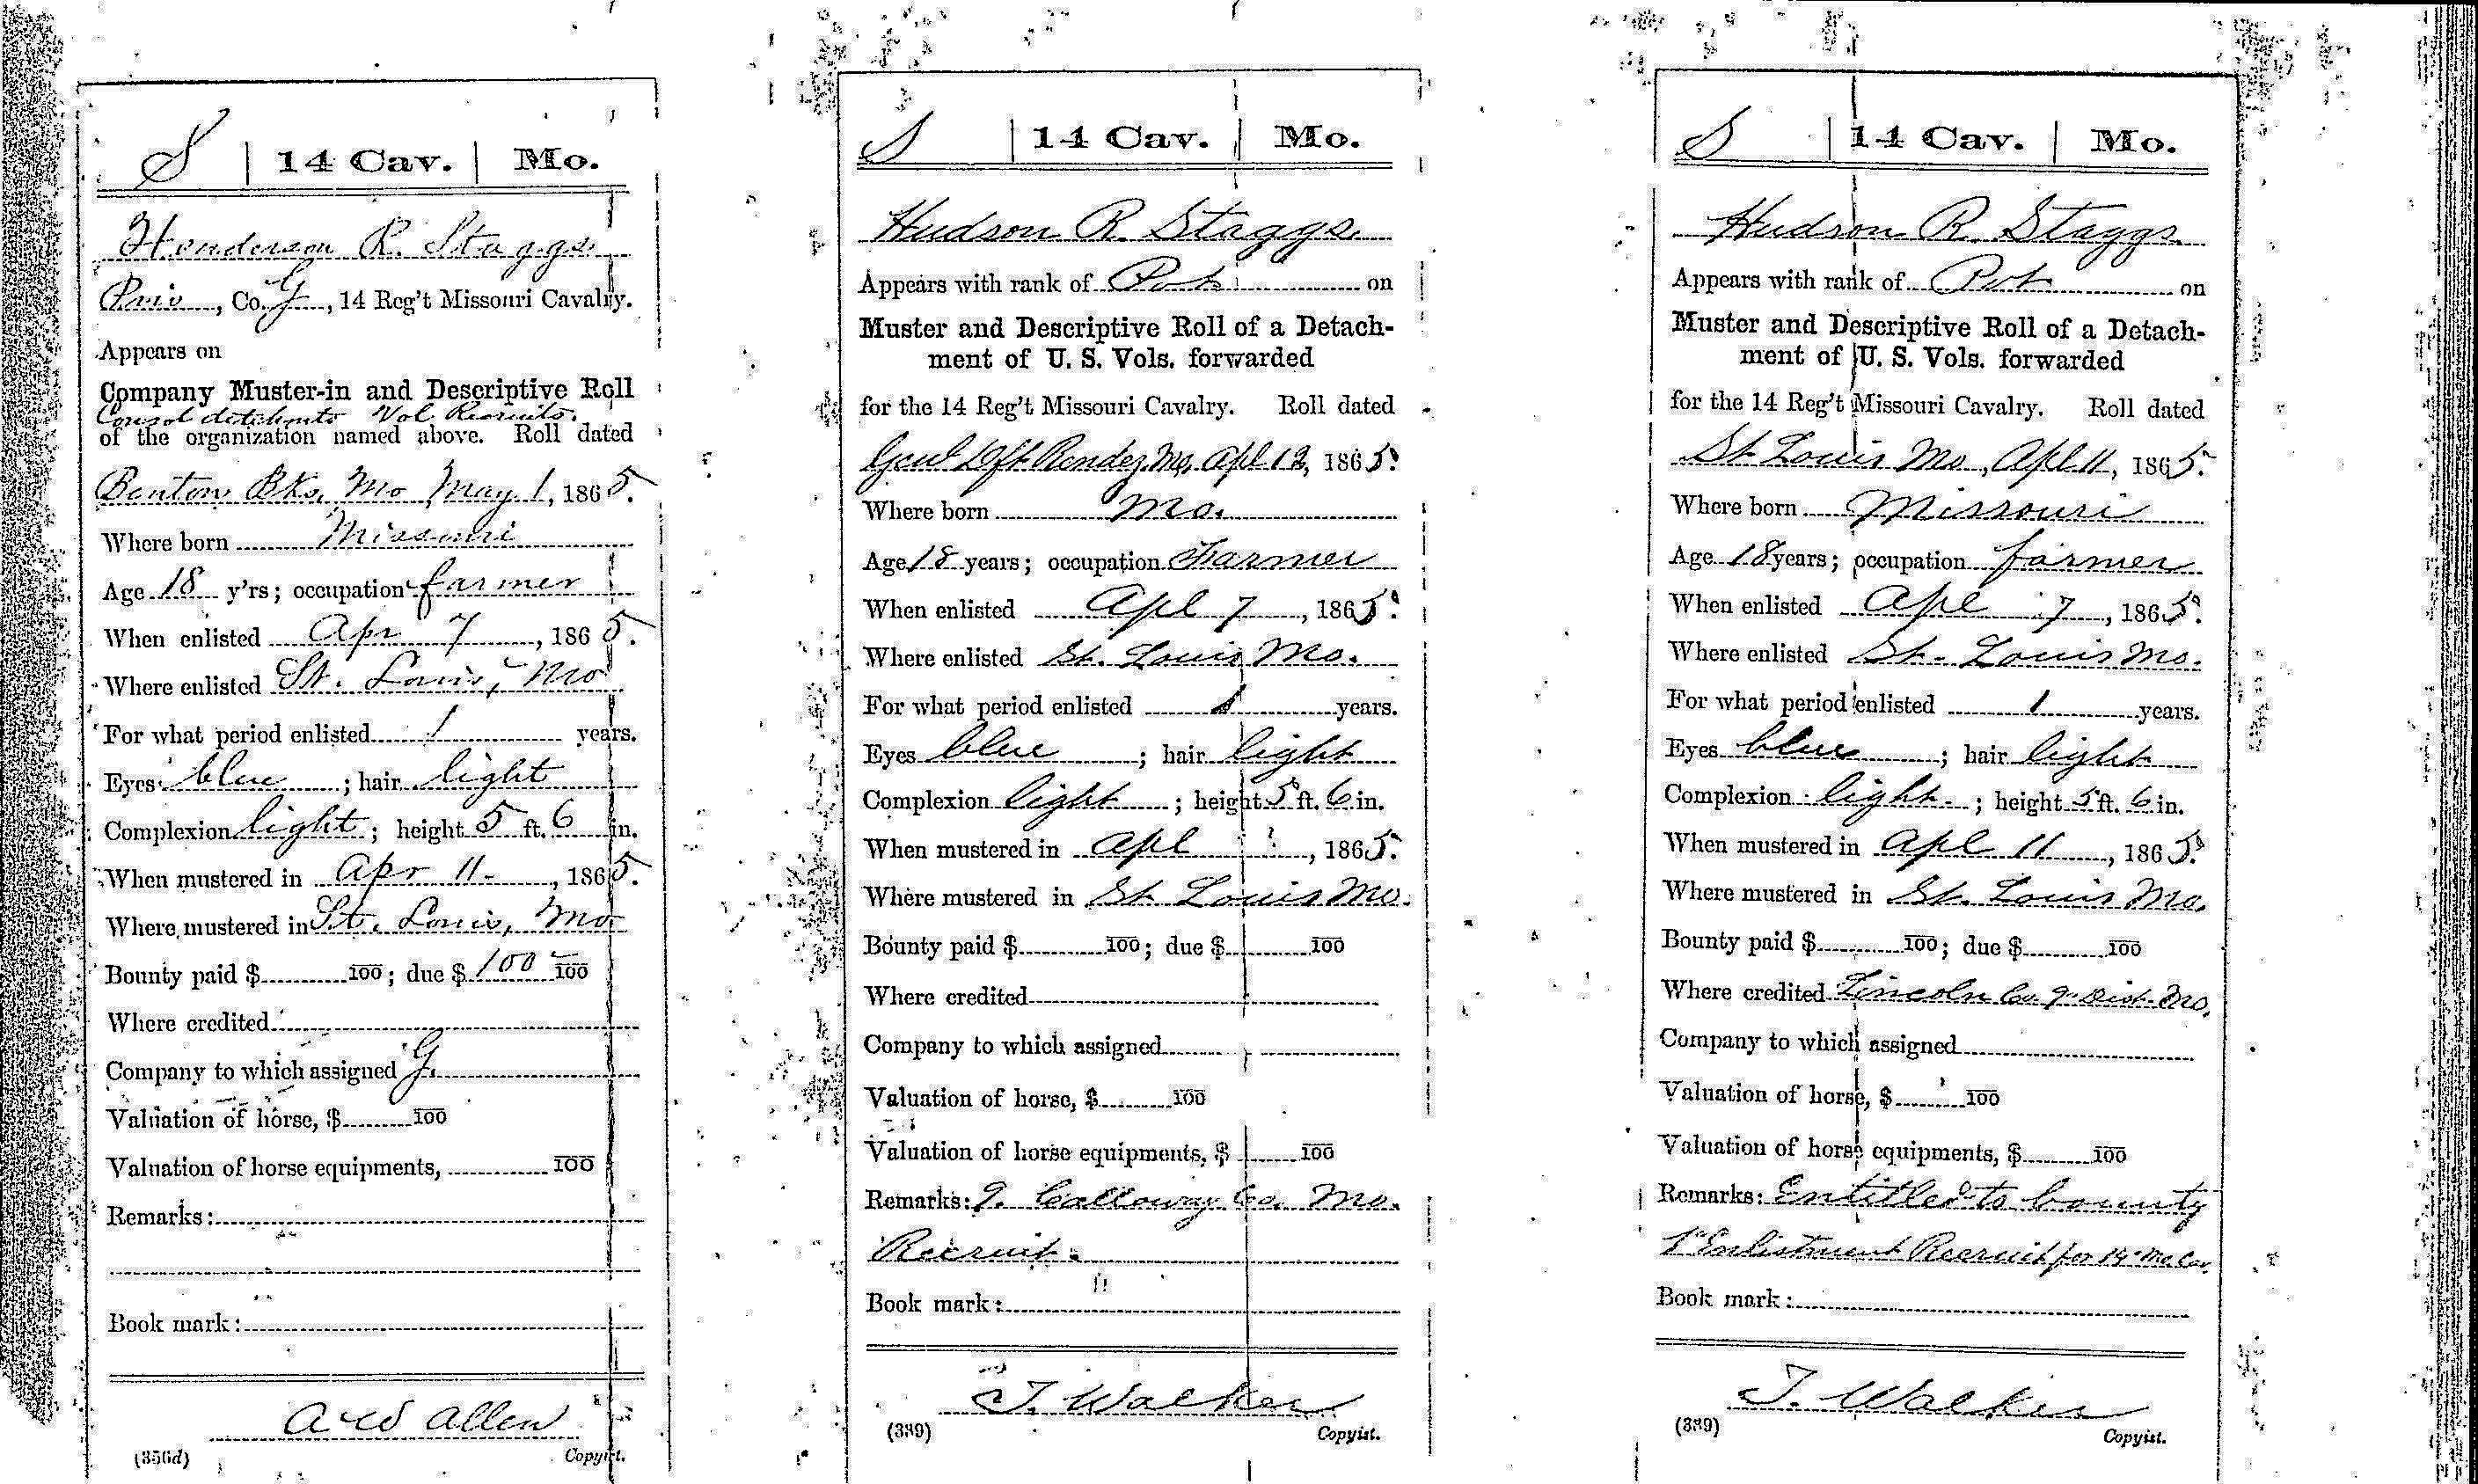 S | 14 Cav. | Mo.
Henderson R. Staggs
Priv, Co. G, 14 Reg't Missouri Cavalry.
Appears on
Company Muster-in and Descriptive Roll
Consol detchmts Vol. Recruits.
of the organization named above. Roll dated
Benton Bks, Mo May 1, 1865.
Where born Missouri
Age 18 y'rs; occupation farmer
When enlisted Apr 7, 1865.
Where enlisted St. Louis, Mo
For what period enlisted 1 years.
Eyes blue; hair light
Complexion light; height 5 ft. 6 in.
When mustered in Apr 11, 1865.
Where mustered in St. Louis, Mo
Bounty paid $ 100; due $ 100 100
Where credited
Company to which assigned G.
Valuation of horse, $ 100
Valuation of horse equipments, 100
Remarks:
Book mark:
A W Allen
(356d) Copyist.
S | 14 Cav. | Mo.
Hudson R. Staggs
Appears with rank of Pvt on
Muster and Descriptive Roll of a Detach-
ment of U. S. Vols. forwarded
for the 14 Reg't Missouri Cavalry. Roll dated
Genl Dft Rendez, Mo, Apl 12, 1865.
Where born Mo.
Age 18 years; occupation Farmer
When enlisted Apl 7, 1865.
Where enlisted St. Louis Mo.
For what period enlisted 1 years.
Eyes blue; hair light
Complexion light; height 5 ft. 6 in.
When mustered in Apl ?, 1865.
Where mustered in St. Louis Mo.
Bounty paid $ 100; due $ 100
Where credited
Company to which assigned
Valuation of horse, $ 100
Valuation of horse equipments, $ 100
Remarks: 9. Calloway Co. Mo.
Recruit.
Book mark:
T. Walker
(339) Copyist.
S | 14 Cav. | Mo.
Hudson R. Staggs
Appears with rank of Pvt on
Muster and Descriptive Roll of a Detach-
ment of U. S. Vols. forwarded
for the 14 Reg't Missouri Cavalry. Roll dated
St. Louis Mo, Apl 11, 1865.
Where born Missouri
Age 18 years; occupation farmer
When enlisted Apl 7, 1865.
Where enlisted St. Louis Mo.
For what period enlisted 1 years.
Eyes blue; hair light
Complexion light; height 5 ft. 6 in.
When mustered in Apl 11, 1865.
Where mustered in St. Louis Mo.
Bounty paid $ 100; due $ 100
Where credited Lincoln Co. 9" Dist. Mo.
Company to which assigned
Valuation of horse, $ 100
Valuation of horse equipments, $ 100
Remarks: Entitled to bounty
1" Enlistment Recruit for 14" Mo. Cav.
Book mark:
T. Walker
(339) Copyist.